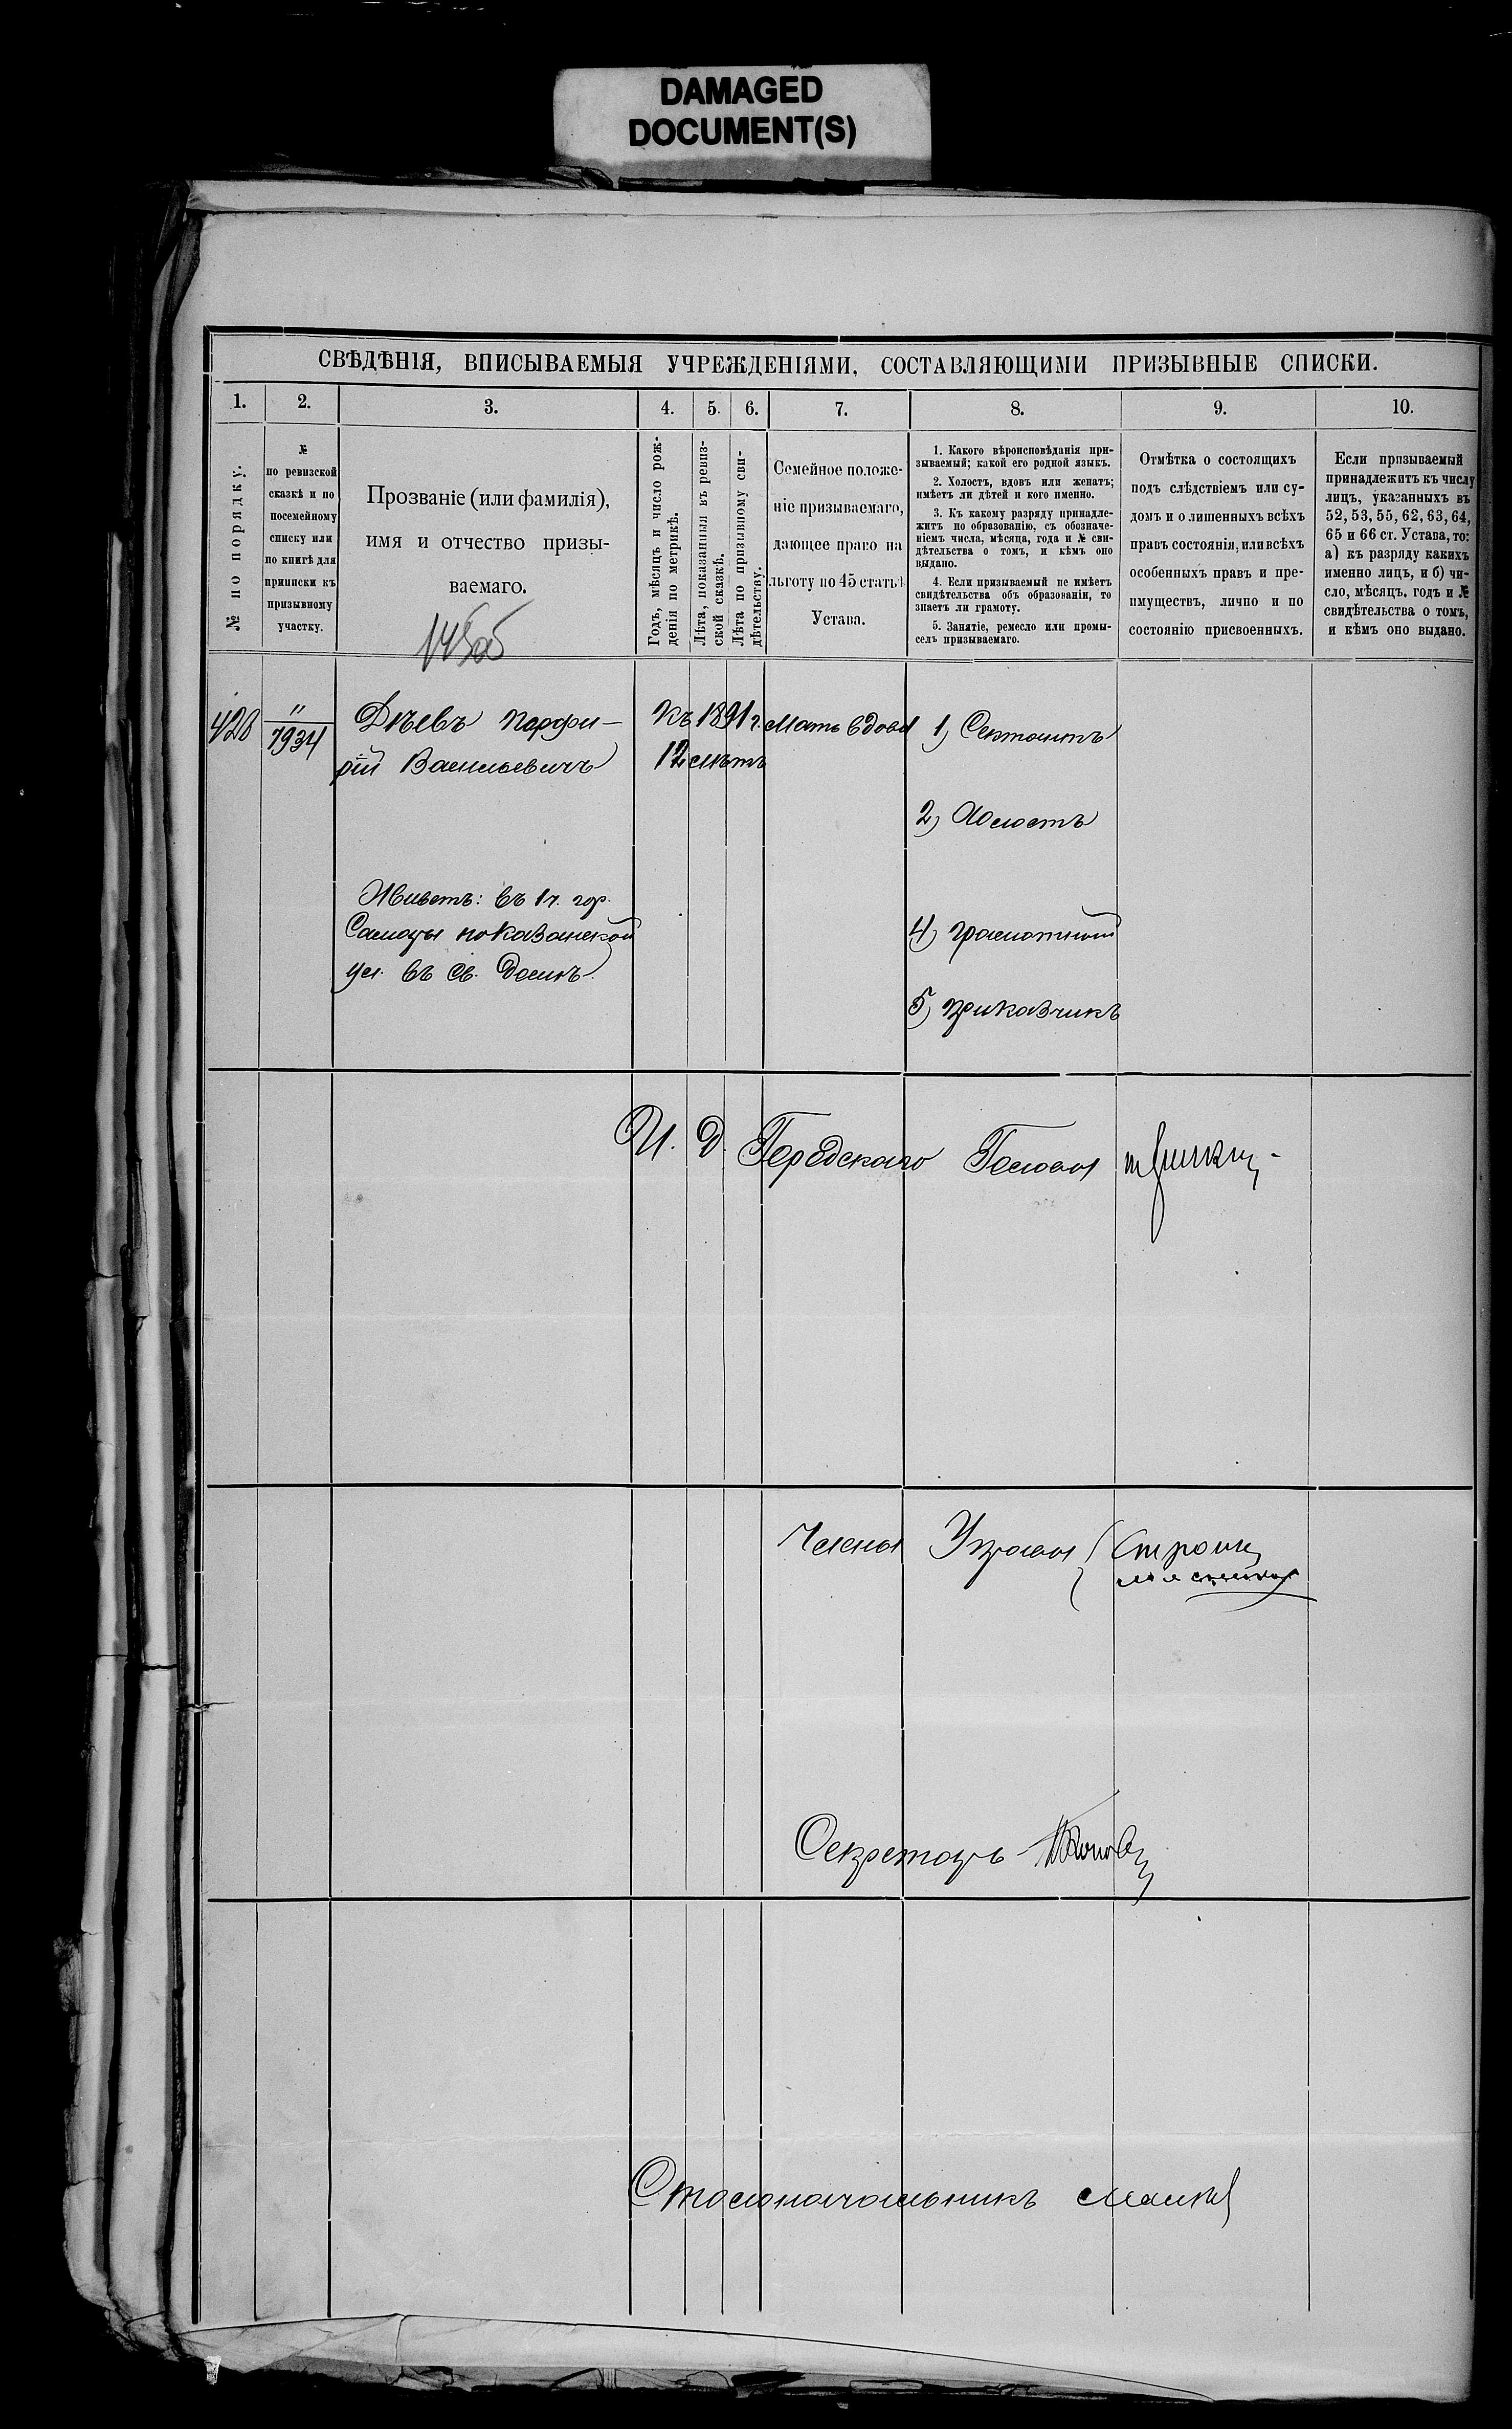 DAMAGED
DOCUMENT(S)
СВѢДѢНІЯ, ВПИСЫВАЕМЫЯ УЧРЕЖДЕНІЯМИ, СОСТАВЛЯЮЩИМИ ПРИЗЫВНЫЕ СПИСКИ.
1. 2. 3. 4. 5. 6. 7. 8. 9. 10.
№ по порядку.
№
по ревизской
сказкѣ и по
посемейному
списку или
по книгѣ для
приписки къ
призывному
участку.
Прозваніе (или фамилія),
имя и отчество призы-
ваемаго.
Годъ, мѣсяцъ и число рож-
денія по метрикѣ.
Лѣта, показанныя въ ревиз-
ской сказкѣ.
Лѣта по призывному сви-
дѣтельству.
Семейное положе-
ніе призываемаго,
дающее право на
льготу по 45 статьѣ
Устава.
1. Какого вѣроисповѣданія при-
зываемый; какой его родной языкъ.
2. Холостъ, вдовъ или женатъ;
имѣетъ ли дѣтей и кого именно.
3. Къ какому разряду принадле-
житъ по образованію, съ обозначе-
ніемъ числа, мѣсяца, года и № сви-
дѣтельства о томъ, и кѣмъ оно
выдано.
4. Если призываемый не имѣетъ
свидѣтельства объ образованіи, то
знаетъ ли грамоту.
5. Занятіе, ремесло или промы-
селъ призываемаго.
Отмѣтка о состоящихъ
подъ слѣдствіемъ или су-
домъ и о лишенныхъ всѣхъ
правъ состоянія, или всѣхъ
особенныхъ правъ и пре-
имуществъ, лично и по
состоянію присвоенныхъ.
Если призываемый
принадлежитъ къ числу
лицъ, указанныхъ въ
52, 53, 55, 62, 63, 64,
65 и 66 ст. Устава, то:
а) къ разряду какихъ
именно лицъ, и б) чи-
сло, мѣсяцъ, годъ и №
свидѣтельства о томъ,
и кѣмъ оно выдано.
428
"
7934
Дѣевъ Порфи-
рій Васильевичъ
Живетъ: въ 1 ч. гор.
Самары по Казанской
ул. въ св. домѣ.
Къ 1891 г.
12 лѣтъ
Мать вдова
1) Сектантъ
2) Холостъ
4) грамотный
5) приказчикъ
И. Д. Городскаго Головы
Члены Управы
Секретарь
Столоначальникъ